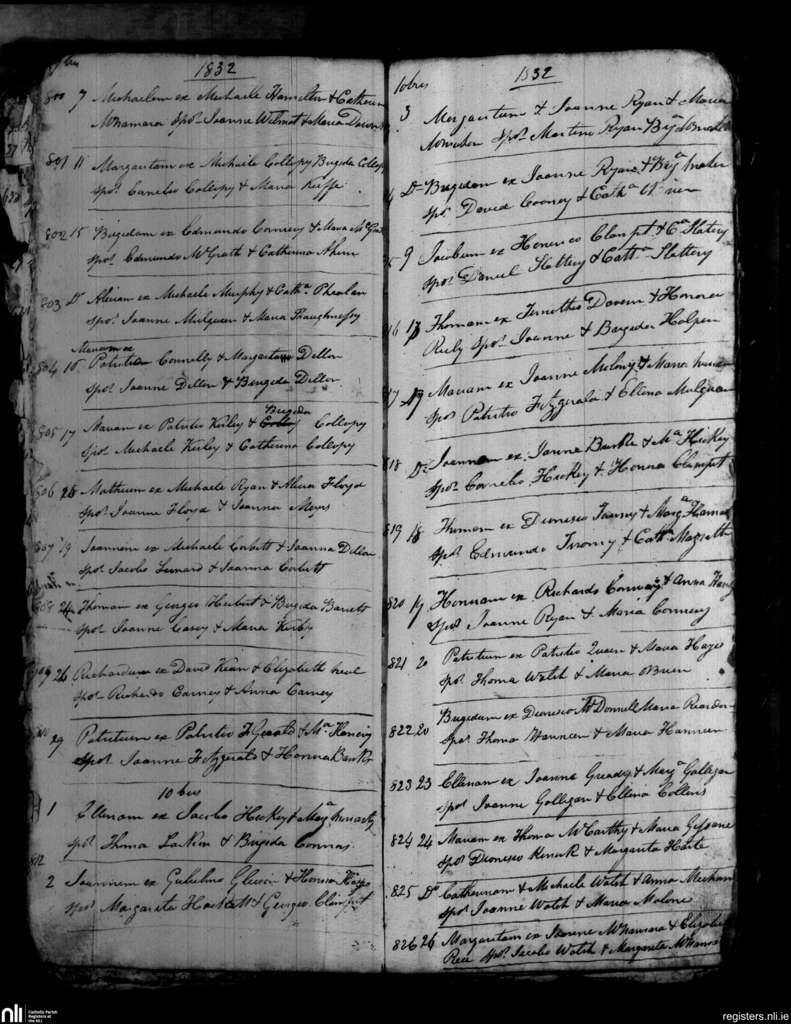 1832
800 7 Michaelem ex Michaele Hamilton & Catherina
McNamara Spos. Joanne Wilmot & Maria Down
801 11 Margaritam ex Michaele Collopy Brigida Collopy
Spos. Cornelio Collopy & Maria Keiffe
802 15 Brigidam ex Edmundo Conway & Maria
Spos. Edmundo McGrath & Catherina Ahern
803 Do Aliciam ex Michaele Murphy & Catha. Phealan
Spos. Joanne Mulqueen & Maria Shaughnessy
Mariam ex
804 16 Patritio Connelly & Margarita Dillon
Spos. Joanne Dillon & Brigida Dillon
Brigida
805 17 Mariam ex Patritio Kirby & Collopy
Spos. Michaele Kirby & Catherina Collopy
806 28 Mathium ex Michaele Ryan & Alicia Floyd
Spos. Joanne Floyd & Joanna Meyrs
807 19 Joannem ex Michaele Corbett & Joanna Dillon
Spos. Jacobo Lenard & Joanna Corbett
808 24 Thomam ex Georgio Herbert & Brigida Barrett
Spos. Joanne Casey & Maria Kirby
809 26 Richardum ex David Kean & Elizabeth
Spos. Richardo Carney & Anna Carney
29 Patritium ex Patritio FzGerald & Ma.
Spos. Joanne Fitzgerald & Honora Banks
10 bris
1 Ellenam ex Jacobo Hickey & Marga.
Spos. Thoma Larkin & Brigida Connors
812
2 Joannem ex Gulielmo Gleeson & Honora Hayes
Spos. Margarita Hackett & Georgio Clampet
10bris 1832
3 Margaritam & Joanne Ryan & Maria
Spos. Martino Ryan
Do Brigidam ex Joanne Ryan & Bga. Maher
Spos. David Cooney & Catha.
9 Jacobum ex Honorio Clampt. & Ca. Slattery
Spos. Daniel Slattery & Catha. Slattery
16 13 Thomam ex Timotheo Davern & Honora
Reily Spos. Joanne & Brigida Halpin
17 13 Mariam ex Joanne Molony & Maria
Spos. Patritio Fitzgerald & Ellena Mulqueen
818 Do Joannam ex Joanne Burke & Ma. Hickey
Spos. Cornelio Hickey & Honora Clampet
819 18 Thomam ex Dionesio Twomy & Marga.
Spos. Edmundo Twomy & Catha. Magrath
820 19 Honoram ex Richardo Conway & Anna
Spos. Joanne Ryan & Maria Conway
821 20 Patritium ex Patritio Quean & Maria Hayes
Spos. Thoma Walsh & Maria OBrien
822 20 Brigidam ex Dionesio McDonnell Maria Riordan
Spos. Thoma Hanneen & Maria Hanneen
823 23 Ellenam ex Joanne Gready & Marga. Galligan
Spos. Joanne Golligan & Ellena Collins
824 24 Mariam ex Thoma McCarthy & Maria
Spos. Dionesio & Margarita Harte
825 Do Catherinam & Michaele Walsh & Anna Meehan
Spos. Joanne Walsh & Maria Malone
826 26 Margaritam ex Joanne McNamara & Elizabeth
Rice Spos. Jacobo Walsh & Margarita McNamara
nli
Catholic Parish
Registers at
the NLI
registers.nli.ie